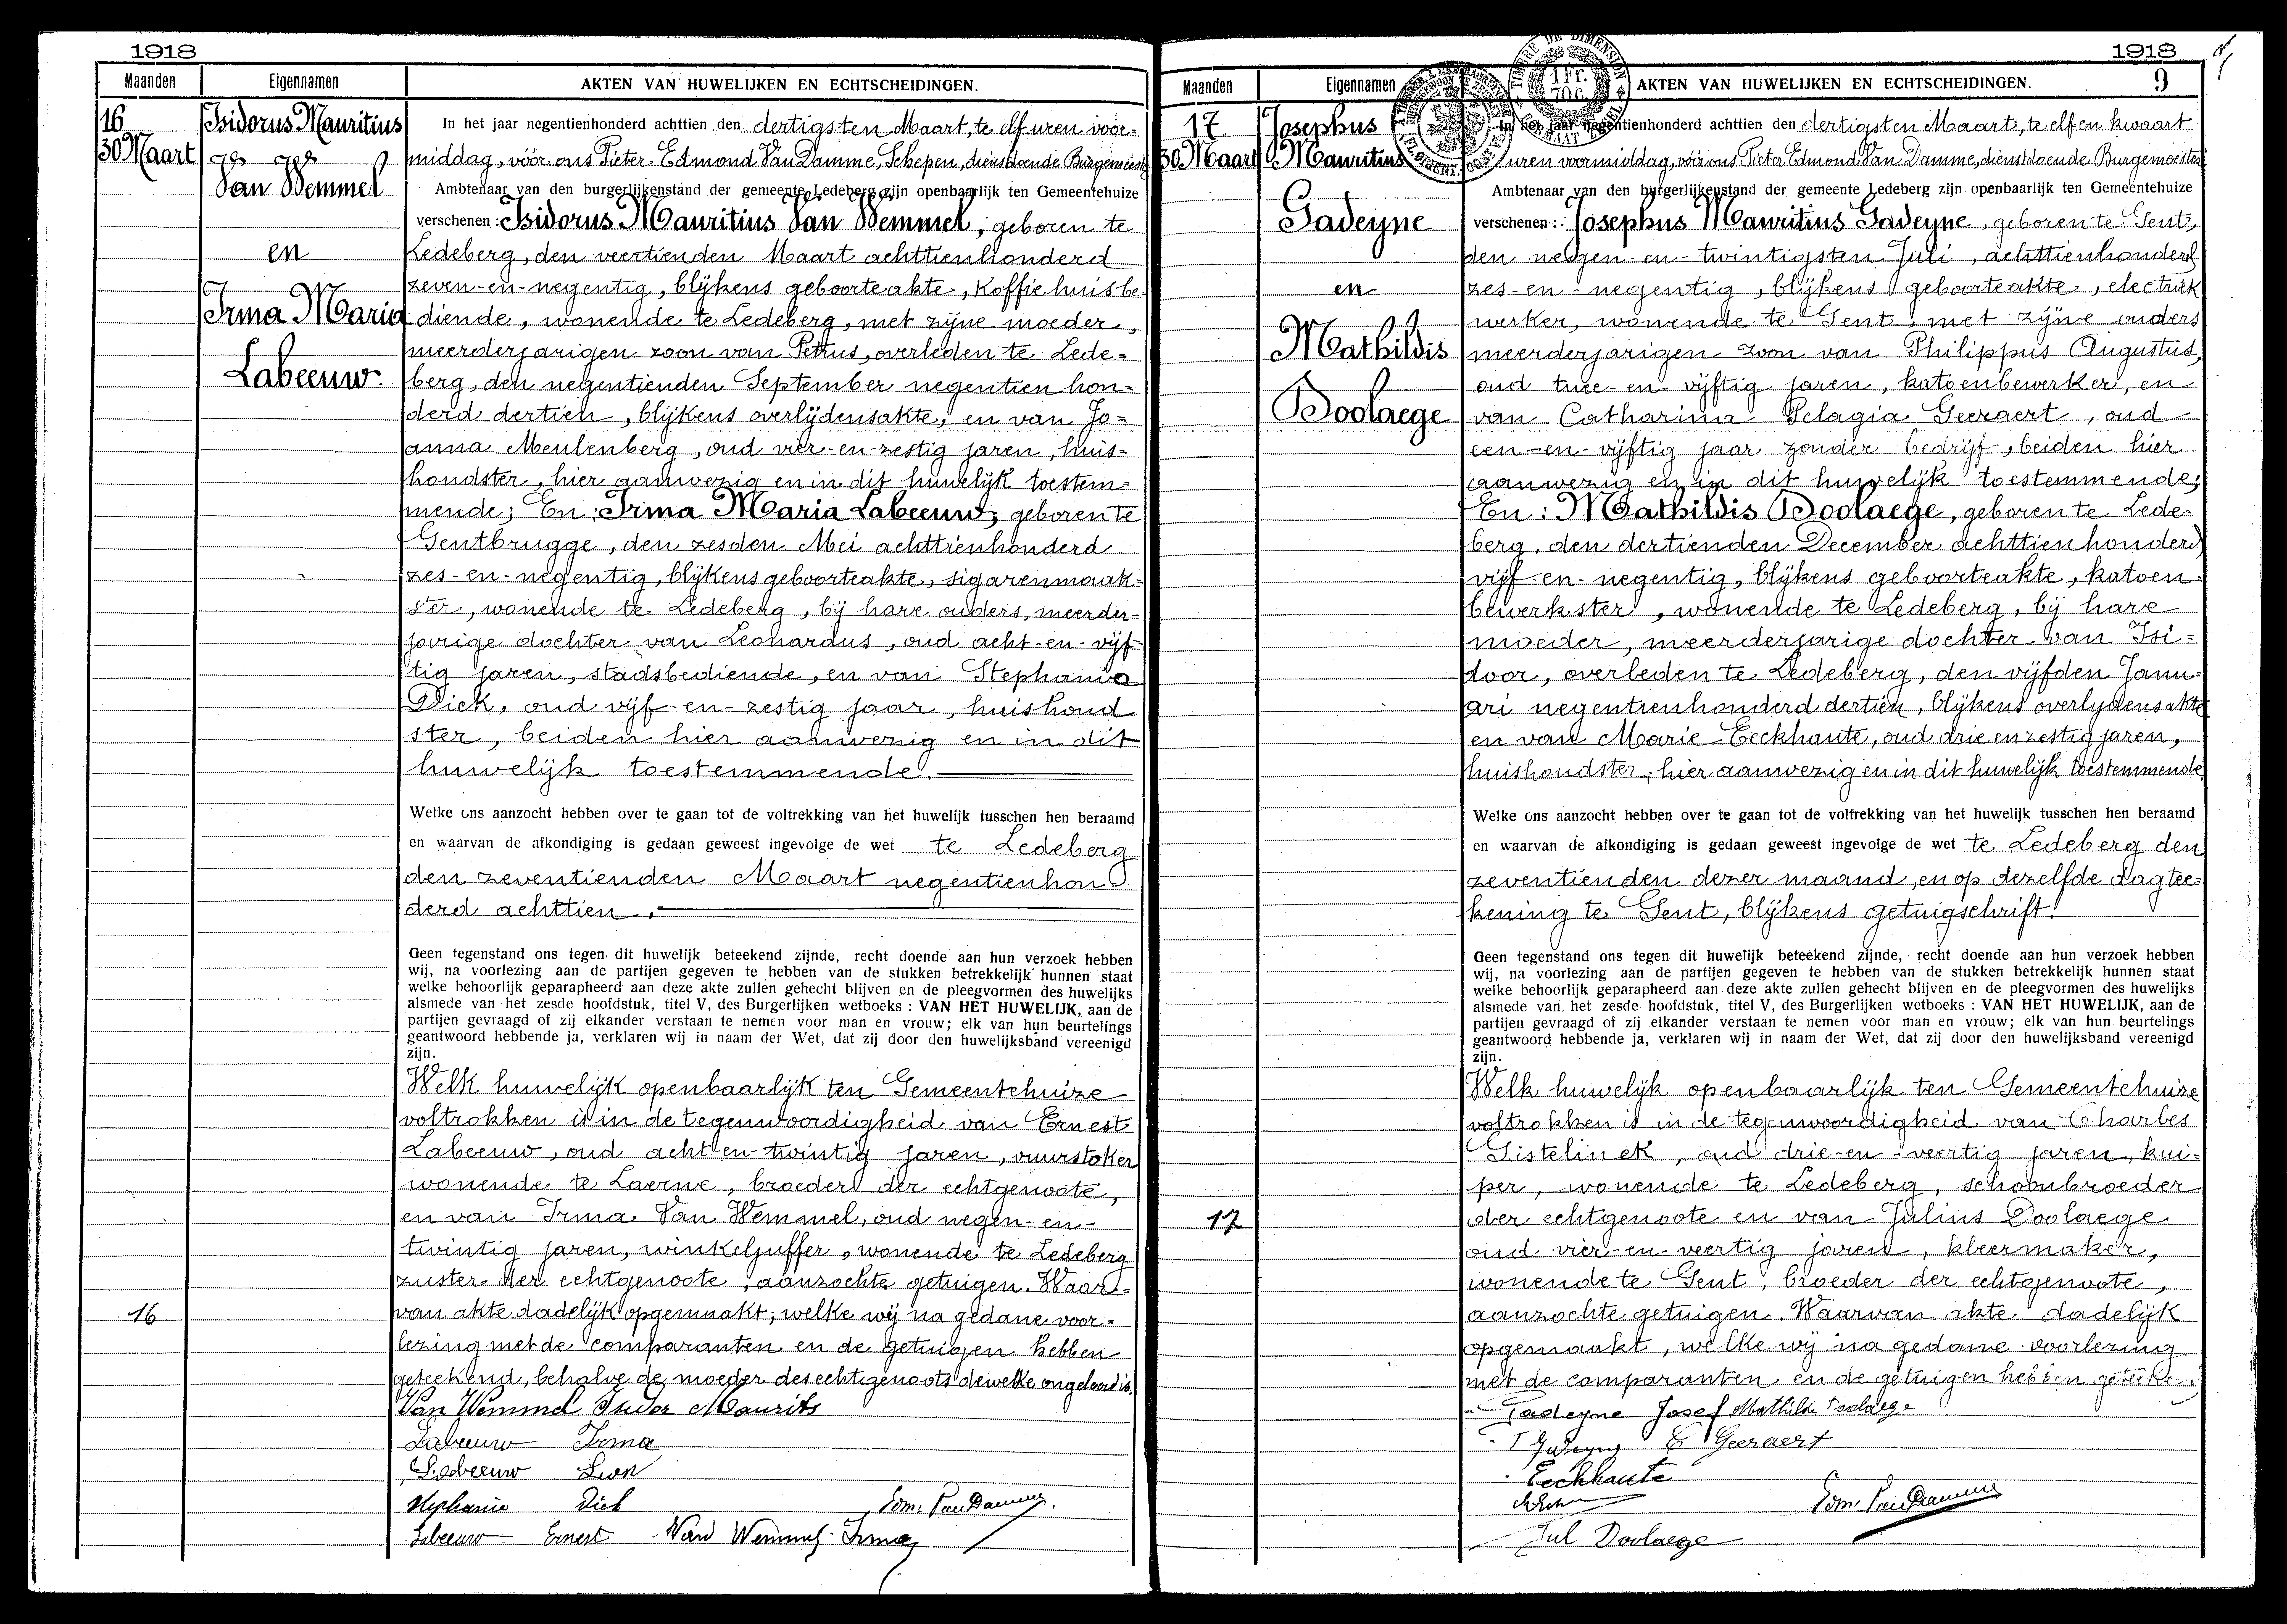 1918
Maanden Eigennamen AKTEN VAN HUWELIJKEN EN ECHTSCHEIDINGEN.
16
30 Maart
Isidorus Mauritius
Van Wemmel
en
Irma Maria
Labeeuw.
In het jaar negentienhonderd achttien den dertigsten Maart, te elf uren voor=
middag, vóór ons Pieter Edmond Van Damme, Schepen, dienstdoende Burgemeester
Ambtenaar van den burgerlijkenstand der gemeente Ledeberg zijn openbaarlijk ten Gemeentehuize
verschenen: Isidorus Mauritius Van Wemmel, geboren te
Ledeberg, den veertienden Maart achttienhonderd
zeven-en-negentig, blijkens geboorteakte, Koffiehuisbe
diende, wonende te Ledeberg, met zijne moeder,
meerderjarigen zoon van Petrus, overleden te Lede=
berg, den negentienden September negentien hon=
derd dertien, blijkens overlijdensakte, en van Jo=
anna Meulenberg, oud vier-en-zestig jaren, huis=
houdster, hier aanwezig en in dit huwelijk toestem=
mende; En: Irma Maria Labeeuw, geboren te
Gentbrugge, den zesden Mei achttienhonderd
zes-en-negentig, blijkens geboorteakte, sigarenmaak=
ster, wonende te Ledeberg, bij hare ouders, meerder=
jarige dochter van Leonardus, oud acht-en-vijf
tig jaren, stadsbediende, en van Stephania
Dick, oud vijf-en-zestig jaar, huishoud
ster, beiden hier aanwezig en in dit
huwelijk toestemmende.
Welke ons aanzocht hebben over te gaan tot de voltrekking van het huwelijk tusschen hen beraamd
en waarvan de afkondiging is gedaan geweest ingevolge de wet te Ledeberg
den zeventienden Maart negentienhon
derd achttien.
Geen tegenstand ons tegen dit huwelijk beteekend zijnde, recht doende aan hun verzoek hebben
wij, na voorlezing aan de partijen gegeven te hebben van de stukken betrekkelijk hunnen staat
welke behoorlijk geparapheerd aan deze akte zullen gehecht blijven en de pleegvormen des huwelijks
alsmede van het zesde hoofdstuk, titel V, des Burgerlijken wetboeks : VAN HET HUWELIJK, aan de
partijen gevraagd of zij elkander verstaan te nemen voor man en vrouw; elk van hun beurtelings
geantwoord hebbende ja, verklaren wij in naam der Wet, dat zij door den huwelijksband vereenigd
zijn.
Welk huwelijk openbaarlijk ten Gemeentehuize
voltrokken is in de tegenwoordigheid van Ernest
Labeeuw, oud acht-en-twintig jaren, vuurstoker
wonende te Laerne, broeder der echtgenoote,
en van Irma Van Wemmel, oud negen-en-
twintig jaren, winkeljuffer, wonende te Ledeberg
zuster der echtgenoote, aanzochte getuigen. Waar=
16
van akte dadelijk opgemaakt, welke wij na gedane voor=
lezing met de comparanten en de getuigen hebben
geteekend, behalve de moeder des echtgenoots dewelke ongeleerd is.
Van Wemmel Isidor Maurits
Labeeuw Irma
Labeeuw Leon
Stephanie Dick Edm. Van Damme.
Labeeuw Ernest Van Wemmel Irma
1918
9
Maanden Eigennamen AKTEN VAN HUWELIJKEN EN ECHTSCHEIDINGEN.
TIMBRE DE DIMENSION
1 Fr.
70 C.
17
30 Maart
Josephus
Mauritius
Gadeyne
en
Mathildis
Doolaege
In het jaar negentienhonderd achttien den dertigsten Maart, te elf en kwaart
uren voormiddag, vóór ons Pieter Edmond Van Damme, dienstdoende Burgemeester
Ambtenaar van den burgerlijkenstand der gemeente Ledeberg zijn openbaarlijk ten Gemeentehuize
verschenen: Josephus Mauritius Gadeyne, geboren te Gent,
den negen-en-twintigsten Juli, achttienhonderd
zes-en-negentig, blijkens geboorteakte, electriek
werker, wonende te Gent, met zijne ouders
meerderjarigen zoon van Philippus Augustus,
oud twee-en-vijftig jaren, katoenbewerker, en
van Catharina Pelagia Geeraert, oud
een-en-vijftig jaar zonder bedrijf, beiden hier
aanwezig en in dit huwelijk toestemmende;
En: Mathildis Doolaege, geboren te Lede=
berg, den dertienden December achttienhonderd
vijf-en-negentig, blijkens geboorteakte, katoen=
bewerkster, wonende te Ledeberg, bij hare
moeder, meerderjarige dochter van Isi=
door, overleden te Ledeberg, den vijfden Janu=
ari negentienhonderd dertien, blijkens overlydensakte
en van Marie Eeckhaute, oud drie en zestig jaren,
huishoudster, hier aanwezig en in dit huwelijk toestemmende
Welke ons aanzocht hebben over te gaan tot de voltrekking van het huwelijk tusschen hen beraamd
en waarvan de afkondiging is gedaan geweest ingevolge de wet te Ledeberg den
zeventienden dezer maand, en op dezelfde dagtee=
kening te Gent, blijkens getuigschrift.
Geen tegenstand ons tegen dit huwelijk beteekend zijnde, recht doende aan hun verzoek hebben
wij, na voorlezing aan de partijen gegeven te hebben van de stukken betrekkelijk hunnen staat
welke behoorlijk geparapheerd aan deze akte zullen gehecht blijven en de pleegvormen des huwelijks
alsmede van het zesde hoofdstuk, titel V, des Burgerlijken wetboeks : VAN HET HUWELIJK, aan de
partijen gevraagd of zij elkander verstaan te nemen voor man en vrouw; elk van hun beurtelings
geantwoord hebbende ja, verklaren wij in naam der Wet, dat zij door den huwelijksband vereenigd
zijn.
Welk huwelijk openbaarlijk ten Gemeentehuize
voltrokken is in de tegenwoordigheid van Charles
Gistelinck, oud drie-en-veertig jaren, kui=
per, wonende te Ledeberg, schoonbroeder
17
der echtgenoote en van Julius Doolaege
oud vier-en-veertig jaren, kleermaker,
wonende te Gent, broeder der echtgenoote,
aanzochte getuigen. Waarvan akte dadelijk
opgemaakt, welke wij na gedane voorlezing
met de comparanten en de getuigen hebben geteeke.
Gadeyne Josef Mathilde Doolaege
Gadeyne C Geeraert
Eeckhaute
Edm. Van Damme
Jul Doolaege